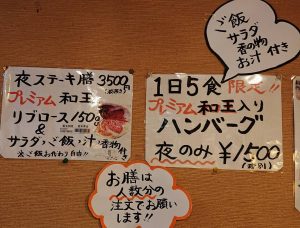 夜ステーキ膳 3500円
(税別)
プレミアム和王
リブロース150g
&
サラダ、ご飯、汁、香物付
※ご飯おかわり自由!!
ご飯
サラダ
香の物
お汁付き
1日5食限定!!
プレミアム和王入り
ハンバーグ
夜のみ ¥1500
(税別)
お膳は
人数分の
注文でお願い
します!!